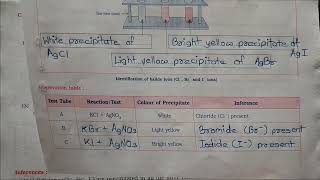 White precipitate of
AgCl
Bright yellow precipitate of
AgI
Light yellow precipitate of AgBr
Identification of halide ions (Cl⁻, Br⁻ and I⁻ ions)
Observation table :
Test Tube Reaction/Test Colour of Precipitate Inference
A KCl + AgNO₃ White Chloride (Cl⁻) present
B KBr + AgNO₃ Light yellow Bromide (Br⁻) present
C KI + AgNO₃ Bright yellow Iodide (I⁻) present
Inferences :